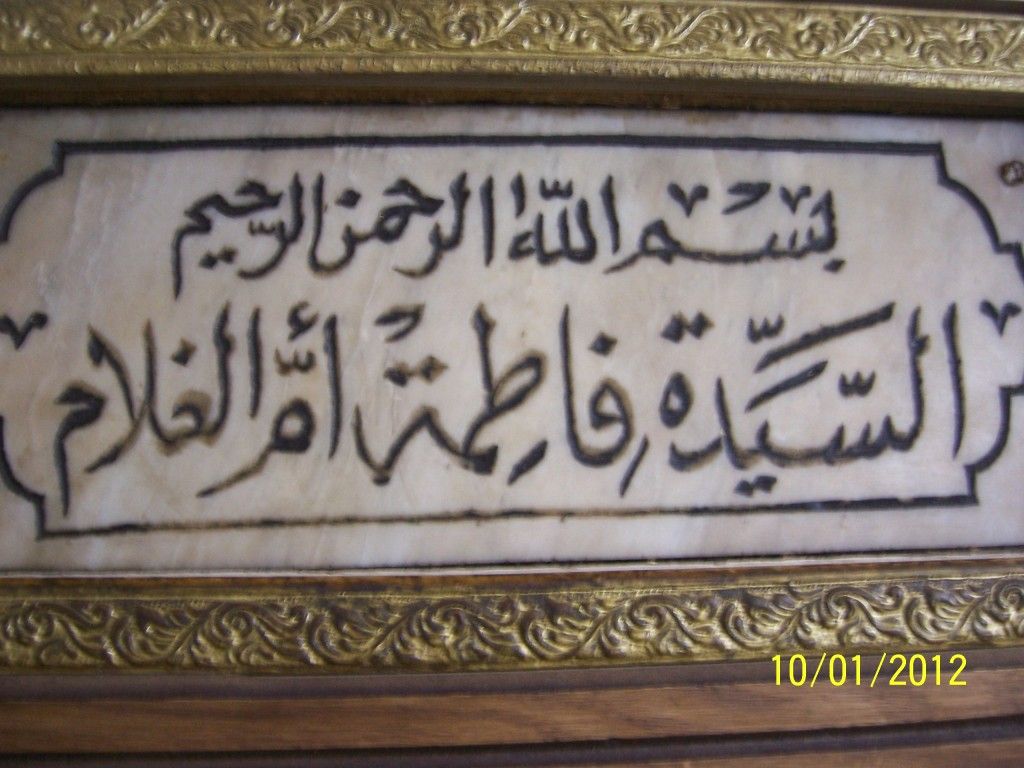 بسم الله الرحمن الرحيم
السَّيِّدة فاطِمة أُمّ الغلام
10/01/2012